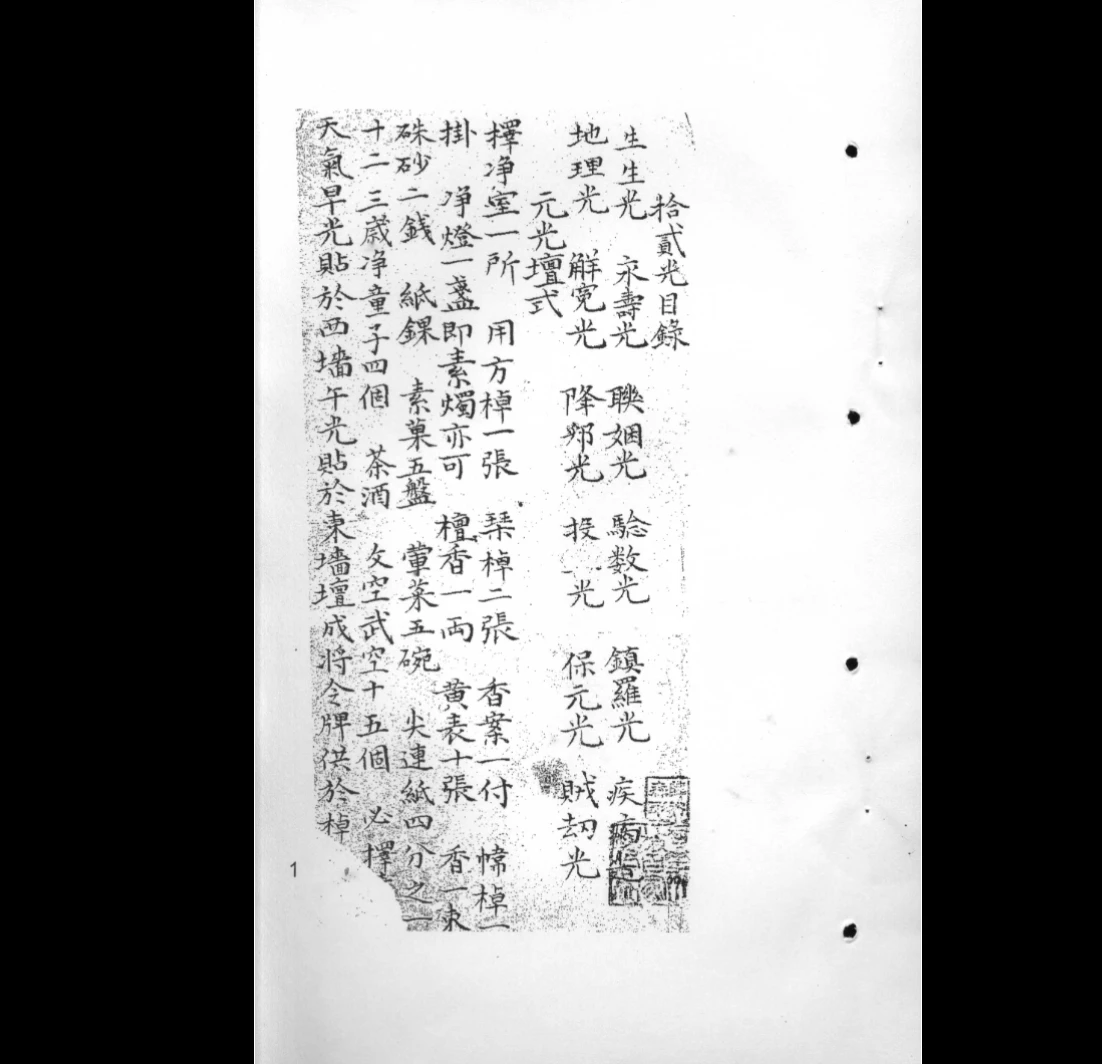 拾貳光目錄
生生光 永壽光 聮姻光 驗数光 鎮羅光 疾病光
地理光 觧寃光 降邪光 投 光 保元光 賊刧光
元光壇式
擇净室一所 用方棹一張 琹棹二張 香案一付 幃棹一
掛 净燈一盞即素燭亦可 檀香一両 黄表十張 香一束
硃砂二錢 紙錁 素菓五盤 葷菜五碗 尖連紙四分之一
十二三歳净童子四個 茶酒 文空武空十五個 必擇
天氣早光貼於西墻午光貼於東墻壇成将令牌供於棹
1